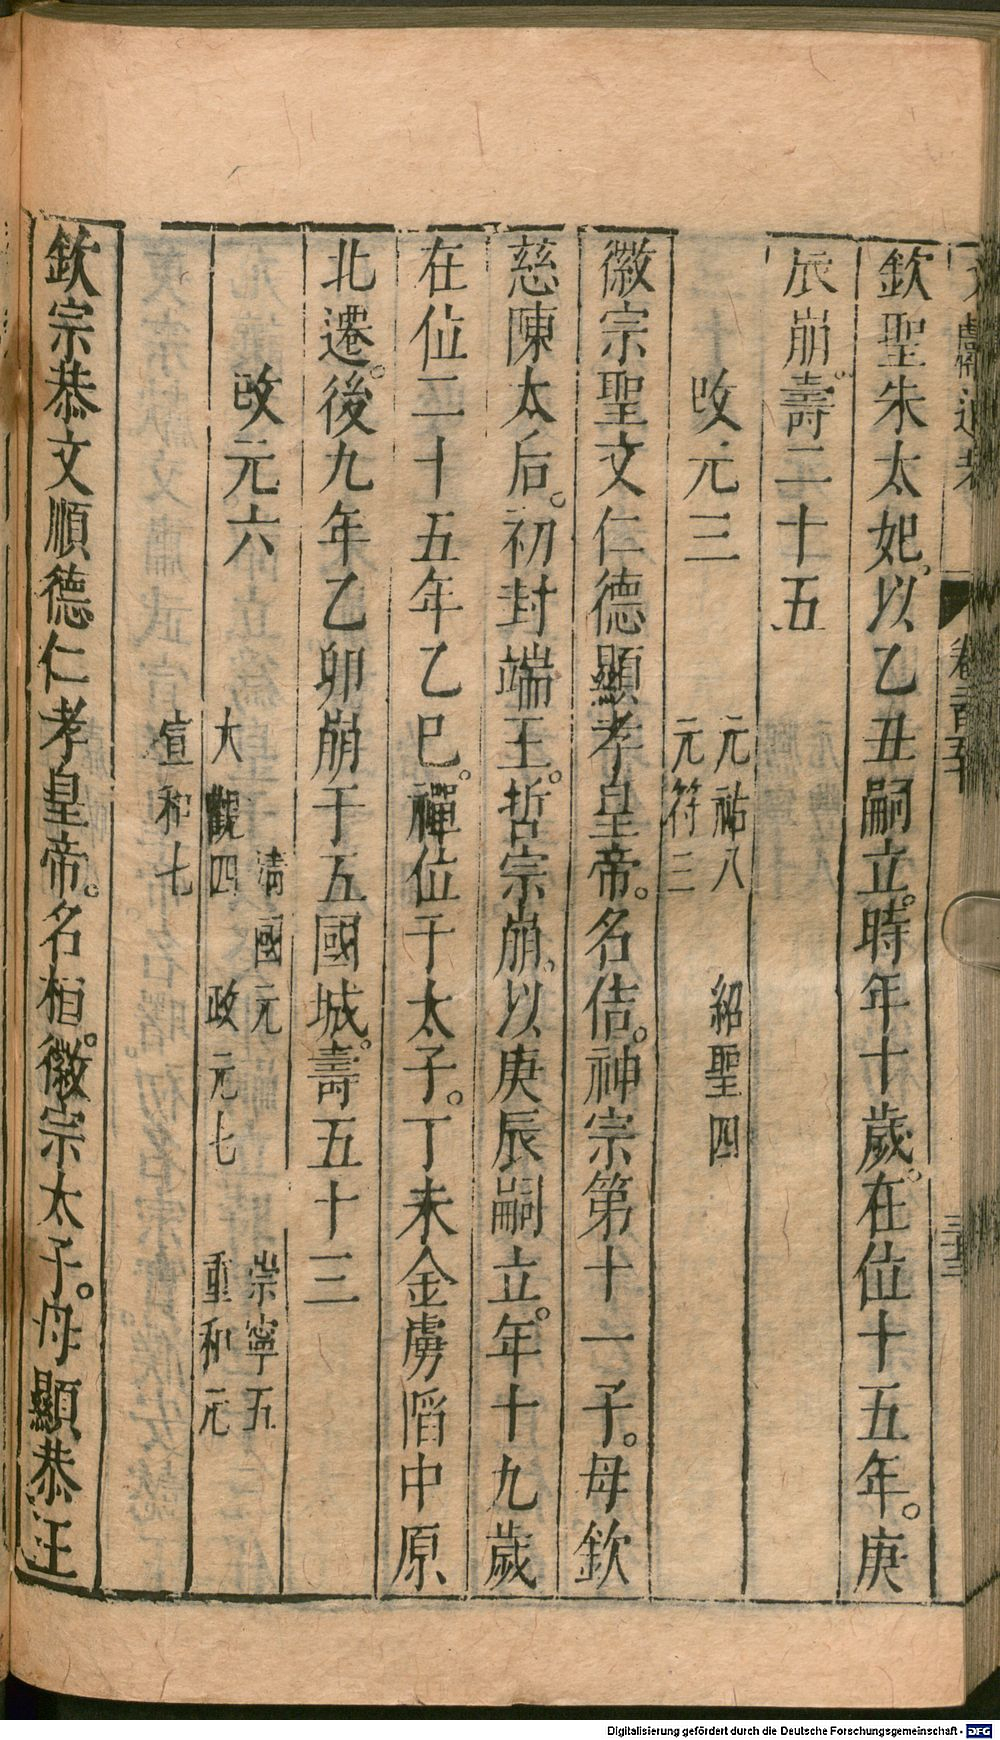 文獻通考 卷二百五十 三十三
欽聖朱太妃。以乙丑嗣立。時年十歲。在位十五年。庚
辰崩。壽二十五
改元三
元祐八 紹聖四
元符三
徽宗聖文仁德顯孝皇帝。名佶。神宗第十一子。母欽
慈陳太后。初封端王。哲宗崩。以庚辰嗣立。年十九歲
在位二十五年乙巳。禪位于太子。丁未金虜陷中原
北遷。後九年乙卯崩于五國城。壽五十三
改元六
淸國元 崇寧五
大觀四 政元七 重和元
宣和七
欽宗恭文順德仁孝皇帝。名桓。徽宗太子。母顯恭王
Digitalisierung gefördert durch die Deutsche Forschungsgemeinschaft - DFG